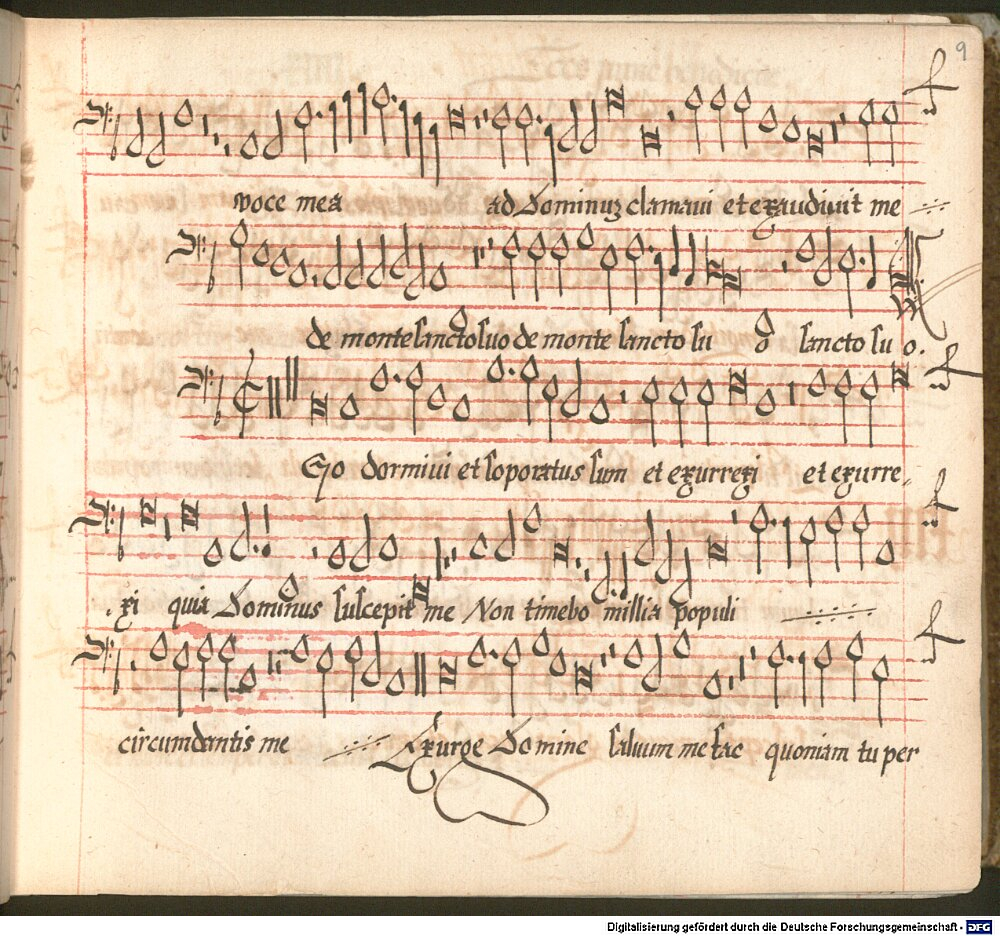 9
voce mea ad Dominuz clamaui et exaudiuit me
de monte sancto suo de monte sancto su o sancto su o.
Go dormiui et soporatus sum et exurrexi et exurre,
xi quia Dominus suscepit me Non timebo millia populi
circumdantis me Exurge Domine saluum me fac quoniam tu per
Digitalisierung gefördert durch die Deutsche Forschungsgemeinschaft - DFG